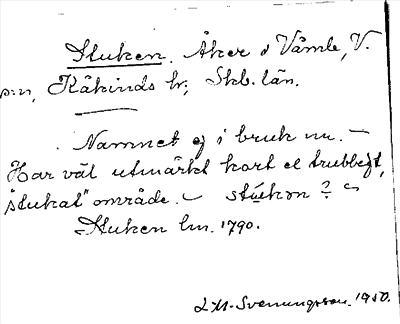 Stuken. Åker i Våmb, V.
sn, Kåkinds hd; Skb. län.
Namnet ej i bruk nu. —
Har väl utmärkt kort el trubbigt,
"stukat" område. — stúkɷn ?
Stuken lm. 1790.
L M. Svenungsson. 1950.